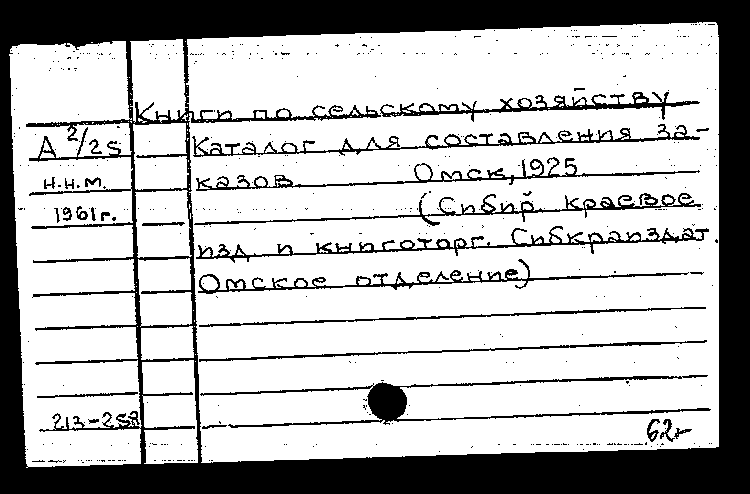 Книги по сельскому хозяйству
А 2/25 Каталог для составления за-
н.н.м. казов. Омск, 1925
1961г. (Сибир. краевое
изд. и книготорг. Сибкрайиздат.
Омское отделение)
213-258
62-